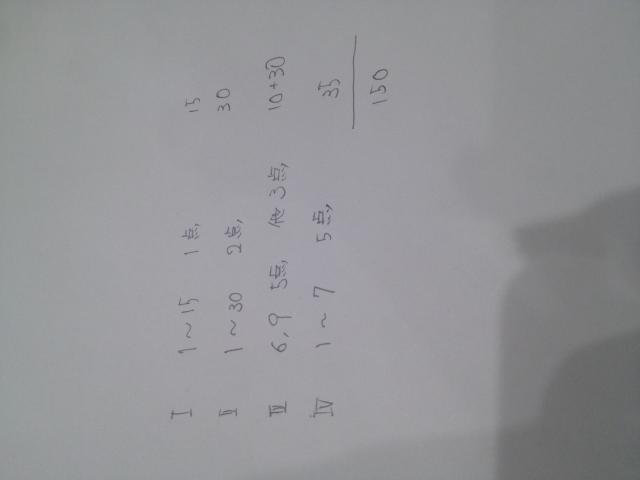 Ⅰ 1～15 1点 15
Ⅱ 1～30 2点 30
Ⅲ 6,9 5点 他3点 10+30
Ⅳ 1～7 5点 35
150